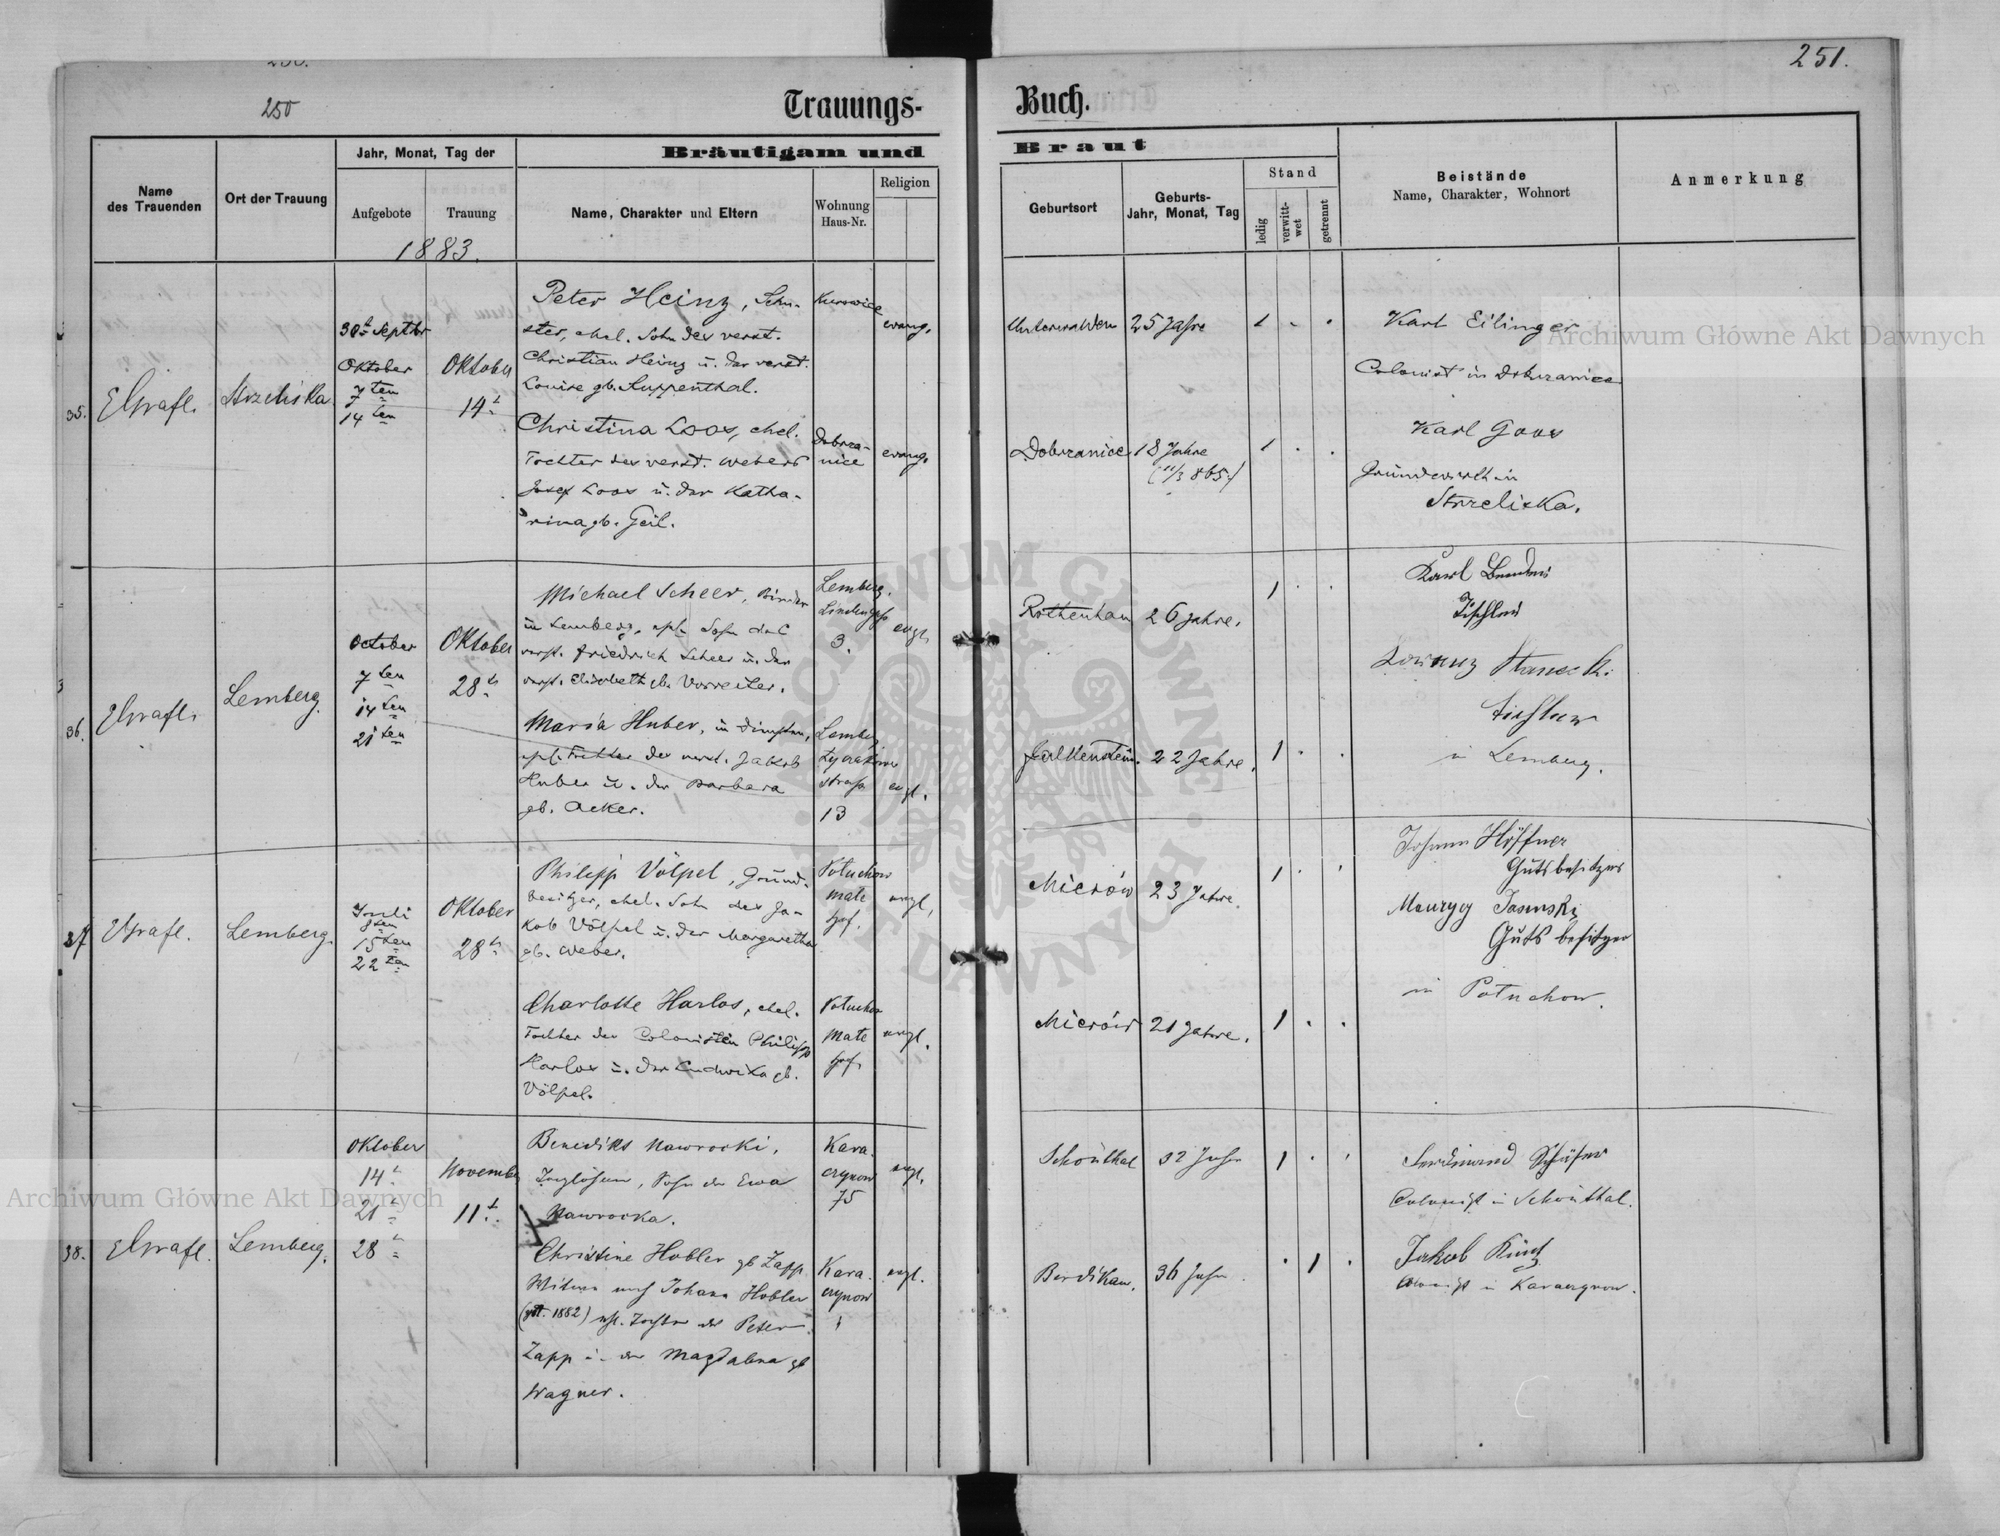 250
251.
Trauungs-
Buch.
Name
des Trauenden
Ort der Trauung
Jahr, Monat, Tag der
Aufgebote
Trauung
Bräutigam und
Name, Charakter und Eltern
Wohnung
Haus-Nr.
Religion
Braut
Geburtsort
Geburts-
Jahr, Monat, Tag
Stand
ledig
verwitt-
wet
getrennt
Beistände
Name, Charakter, Wohnort
Anmerkung
1883.
35.
EGrafl.
Strzeliska
30t Septbr
Oktober
7ten
14ten
Oktober
14t
Peter Heinz, Schu-
ster, ehel. Sohn des verst.
Christian Heinz u. der verst.
Louise gb. Ruppenthal.
Kurowice
evang.
Unterwalden
25 Jahre
1
Karl Eilinger
Colonist in Dobrzanica
Christina Loos, ehel.
Tochter des verst. Webers
Josef Loos u. der Katha-
rina gb. Geil.
Dobrza-
nice
evang.
Dobrzanice
18 Jahre
(11/3 865.)
1
Karl Goos
Grundwirth in
Strzeliska.
36.
EGrafl.
Lemberg.
October
7ten
14ten
21ten
Oktober
28t
Michael Scheer, Binder
in Lemberg, ehl. Sohn des
verst. Friedrich Scheer u. der
verst. Elisabeth gb. Vorreiter.
Lemberg.
Lindengasse
3.
evgl.
Rottenhan
26 Jahre.
1
Karl
Tischler
Maria Huber, in Diensten,
ehl. Tochter des verst. Jakob
Huber u. der Barbara
gb. Acker.
Lemberg
Łyczakower
strasse
13
evgl.
Falkenstein.
22 Jahre.
1
Lorenz Staneck.
Tischler
in Lemberg.
37
EGrafl.
Lemberg.
Juli
8ten
15ten
22ten
Oktober
28t
Philipp Völpel, Grund-
besitzer, ehel. Sohn des Ja-
kob Völpel u. der Margaretha
gb. Weber.
Potuchow
mate
hof.
evgl.
Mierów
23 Jahre.
1
Johann Höffner
Gutsbesitzer
Charlotte Harlos, ehel.
Tochter des Colonisten Philipp
Harlos u. der Ludwika gb.
Völpel.
Potuchow
mate
hof.
evgl.
Mierów
21 Jahre.
1
Maurycy Jasinski
Gutsbesitzer
in Potuchow.
38.
EGrafl.
Lemberg.
Oktober
14t
21t
28t
November
11t
Benedikt Nawrocki,
Taglöhner, Sohn der Ewa
Nawrocka.
Kara-
czynow
75
evgl.
Schönthal
32 Jahre
1
Ferdinand Schäfer
Colonist in Schönthal.
Christine Hobler gb Zapp
Witwe nach Johann Hobler
(gst. 1882) ehl. Tochter des Peter
Zapp u. der Magdalena gb
Wagner.
Kara-
czynow
evgl.
Berdikau.
36 Jahre
1
Jakob Küntz
Colonist in Karaczynow.
Archiwum Główne Akt Dawnych
Archiwum Główne Akt Dawnych
ARCHIWUM GŁÓWNE AKT DAWNYCH